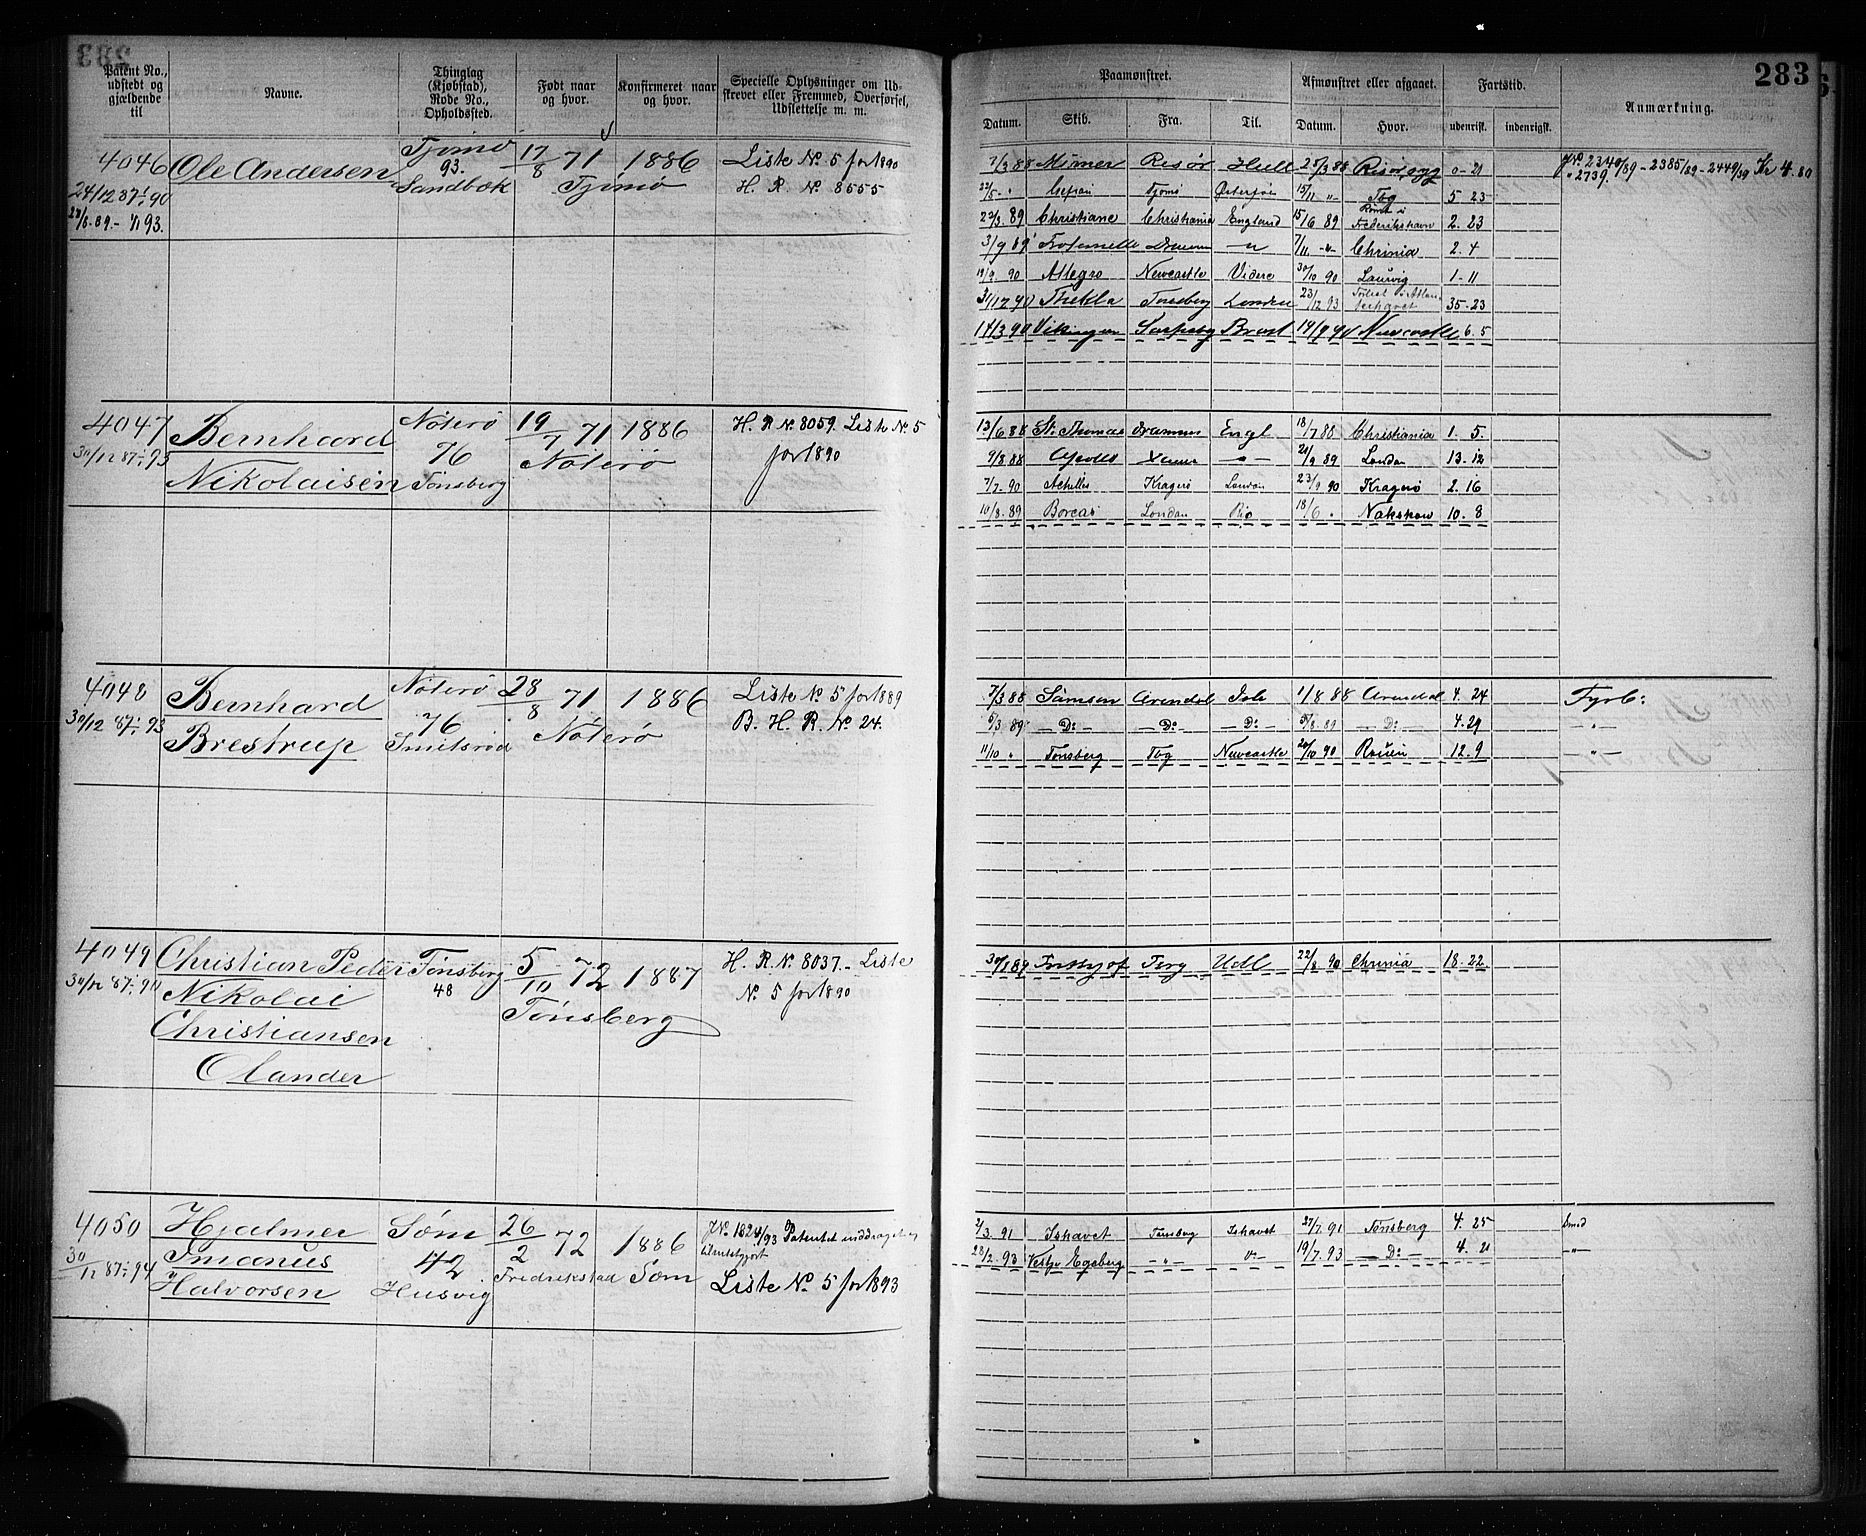 283
Patent No., udstedt og gjældende til
Navne.
Thinglag (Kjøbstad), Rode No., Opholdssted.
Født naar og hvor.
Konfirmeret naar og hvor.
Specielle Oplysninger om Udskrevet eller Fremmed, Overførsel, Udslettelse m. m.
Paamønstret.
Afmønstret eller afgaaet.
Fartstid.
Anmærkning.
Datum. Skib. Fra. Til. Datum. Hvor. udenrigs. indenrigs.
4046 Ole Andersen Tjømø 93. Sandbæk 17/8 71 Tjømø 1886 Liste No. 5 for 1890
24/12 87-1/1 90 H. R. No 8555
28/8.89.- 1/1 93.
7/3 88 Mimer Risør Hull 25/3 88 Risør 0-21
22/5 " Tjømø 15/11 " Tbg 5 23
22/3. 89 Christiane Christiania England 15/6 89 Frederikshavn 2. 23
3/9 89 7/11 -"- Chrinia 2. 4
19/9. 90 Allegro Newcastle 30/10 90 Laurvig 1-11
31/12 90 Thekla Tønsberg London 23/12 93 35-23
14/3 90 Vikingen Brest 14/9 90 Newcastle 6. 5
No. 2340/89 - 2385/89 - 2449/89 Kr 4.80
" 2739.
4047 Bernhard Nikolaisen Nøterø 76 Tønsberg 19/7 71 Nøterø 1886 H. R. No. 8059. Liste No. 5 for 1890
30/12 87-93
13/6 88 St. Thomas Drammen Engl 18/7 88 Christiania 1. 5.
9/8 88 -"- 20/9 89 London 13. 12
7/7. 90 Achilles Kragerø London 23/9 90 Kragerø 2. 16
10/8. 89 Boreas London Rio 18/6 " Nakskow 10. 8
4048 Bernhard Brestrup Nøterø 76 Smitsrød 28/8 71 Nøterø 1886 Liste No. 5 for 1889
30/12 87-93 B. H. R. No 24.
7/3 88 Samson Arendal 1/8 88 Arendal 4. 24 Fyrb:
6/3 89 - Do: - - Do: - - Do: - 5/8. 89 - Do: - 4. 29 -"-
11/10 " Tønsberg Tbg Newcastle 20/10 90 Rouen 12. 9 -"-
4049 Christian Peder Nikolai Christiansen Olander Tønsberg 48 5/10 72 Tønsberg 1887 H. R. No. 8037.- Liste No. 5 for 1890
30/12 87-
30/8 89 Frithjof Tbrg Udl 22/8 90 Chrinia 18-22
4050 Hjalmer Imanus Halvorsen Søm 42 Husvig 26/2 72 Fredrikstad 1886 Søm
30/12 87-94
Patentet inddraget og tilintetgjort
Liste No. 5 for 1893
2/3. 91 Ishavet Tønsberg Ishavet 27/7. 91 Tønsberg 4. 25
28/2. 93 Vestye Egeberg -"- Do- 19/7. 93 - Do: - 4. 21 -"-